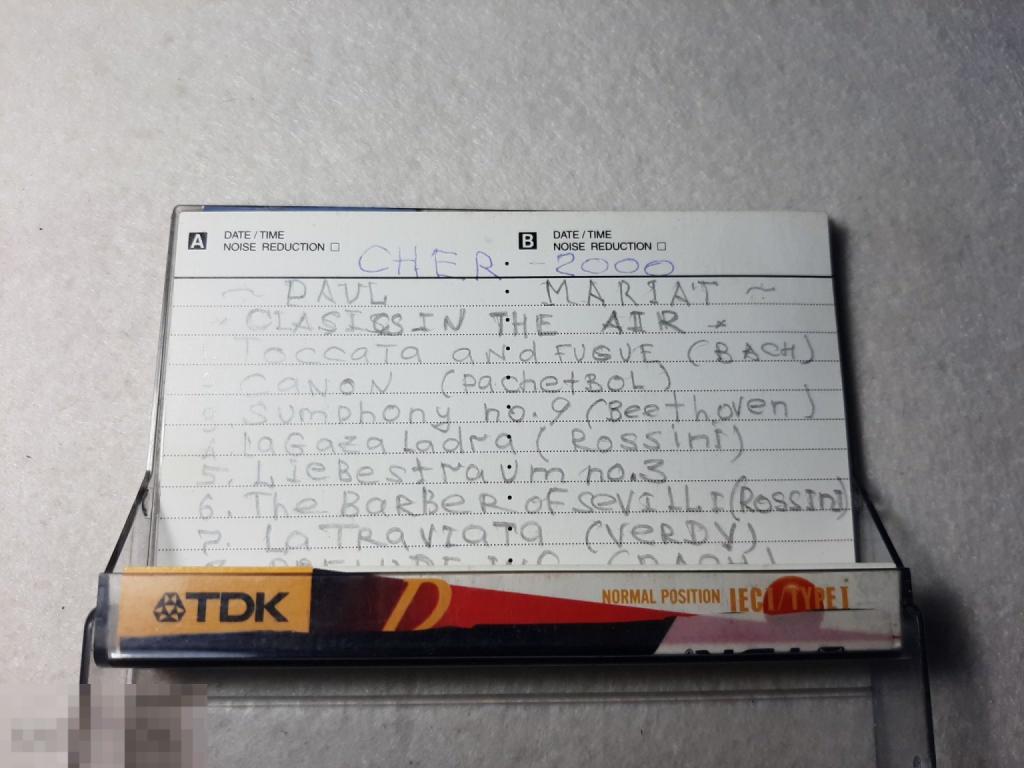 A DATE / TIME B DATE / TIME
NOISE REDUCTION □ NOISE REDUCTION □
CHER - 2000
~ PAUL MARIAT ~
* CLASICS IN THE AIR *
1. Toccata and FUGUE (BACH)
- CANON (pachetBOL)
3. Sumphony no. 9 (Beethoven)
4. La Gaza Ladra (Rossini)
5. Liebestraum no.3
6. The BarBer of SeVILLI (Rossini)
7. La TRAVIATA (VERDY)
TDK D NORMAL POSITION IEC I / TYPE I